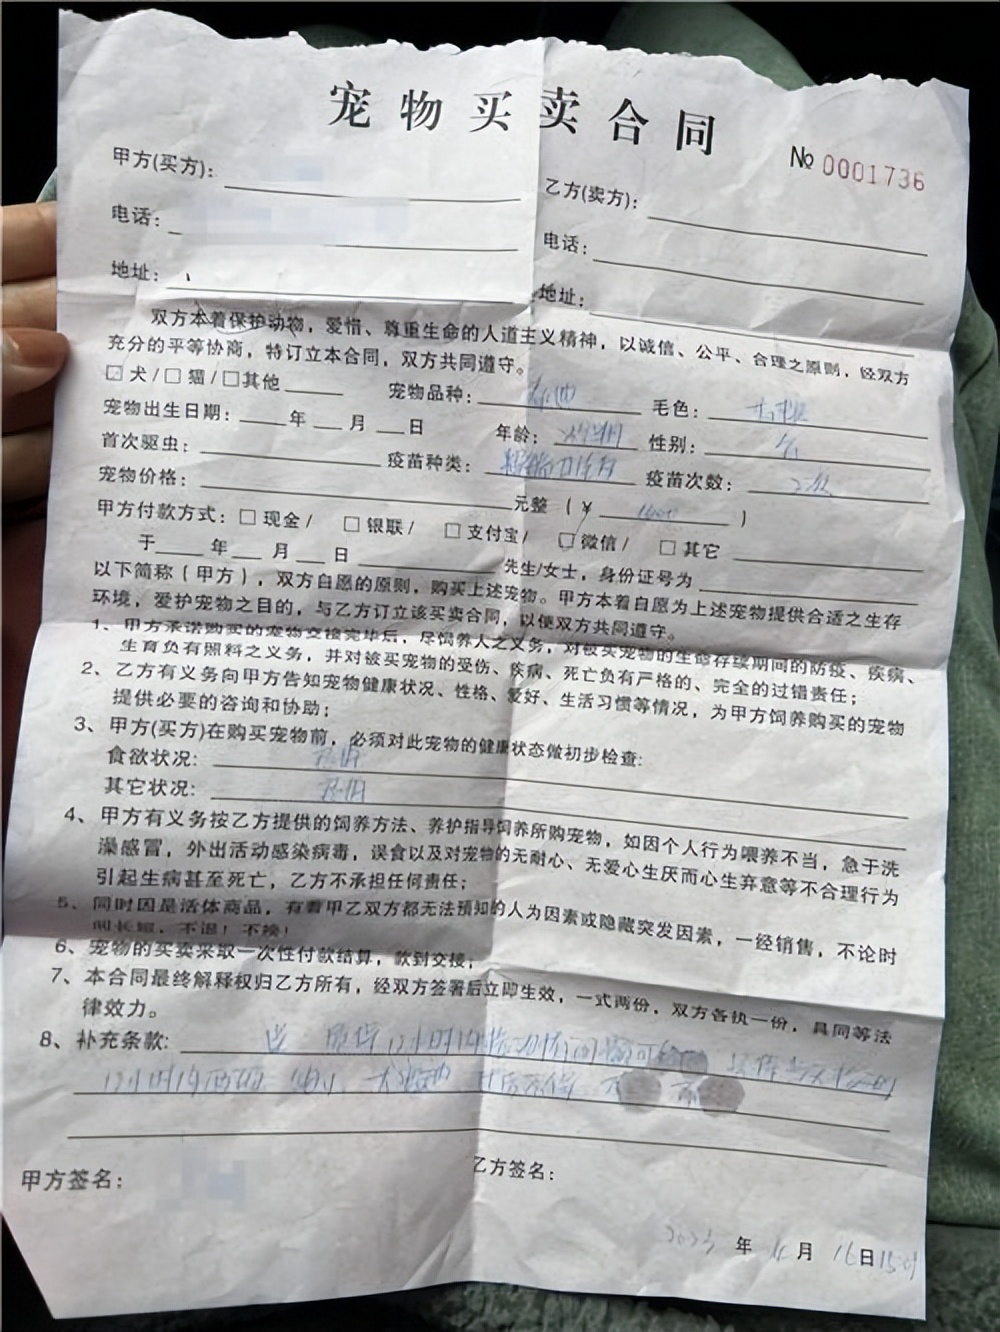 宠物买卖合同
№ 0001736
甲方(买方):
乙方(卖方):
电话:
电话:
地址:
地址:
双方本着保护动物，爱惜、尊重生命的人道主义精神，以诚信、公平、合理之原则，经双方
充分的平等协商，特订立本合同，双方共同遵守。
犬/□猫/□其他 宠物品种: 毛色:
宠物出生日期: 年 月 日 年龄: 性别:
首次驱虫: 疫苗种类: 疫苗次数: 2次
宠物价格: 元整 (¥ )
甲方付款方式: □现金/ □银联/ □支付宝/ □微信/ □其它
于 年 月 日 先生/女士，身份证号为
以下简称(甲方)，双方自愿的原则，购买上述宠物。甲方本着自愿为上述宠物提供合适之生存
环境，爱护宠物之目的，与乙方订立该买卖合同，以便双方共同遵守。
1、甲方承诺购买的宠物交接完毕后，尽饲养人之义务，对被买宠物的生命存续期间的防疫、疾病、
生育负有照料之义务，并对被买宠物的受伤、疾病、死亡负有严格的、完全的过错责任；
2、乙方有义务向甲方告知宠物健康状况、性格、爱好、生活习惯等情况，为甲方饲养购买的宠物
提供必要的咨询和协助；
3、甲方(买方)在购买宠物前，必须对此宠物的健康状态做初步检查:
食欲状况:
其它状况:
4、甲方有义务按乙方提供的饲养方法、养护指导饲养所购宠物，如因个人行为喂养不当，急于洗
澡感冒，外出活动感染病毒，误食以及对宠物的无耐心、无爱心生厌而心生弃意等不合理行为
引起生病甚至死亡，乙方不承担任何责任；
5、同时因是活体商品，有着甲乙双方都无法预知的人为因素或隐藏突发因素，一经销售，不论时
间长短，不退！不换！
6、宠物的买卖采取一次性付款结算，款到交接；
7、本合同最终解释权归乙方所有，经双方签署后立即生效，一式两份，双方各执一份，具同等法
律效力。
8、补充条款:
甲方签名:
乙方签名:
2023 年 月 16日